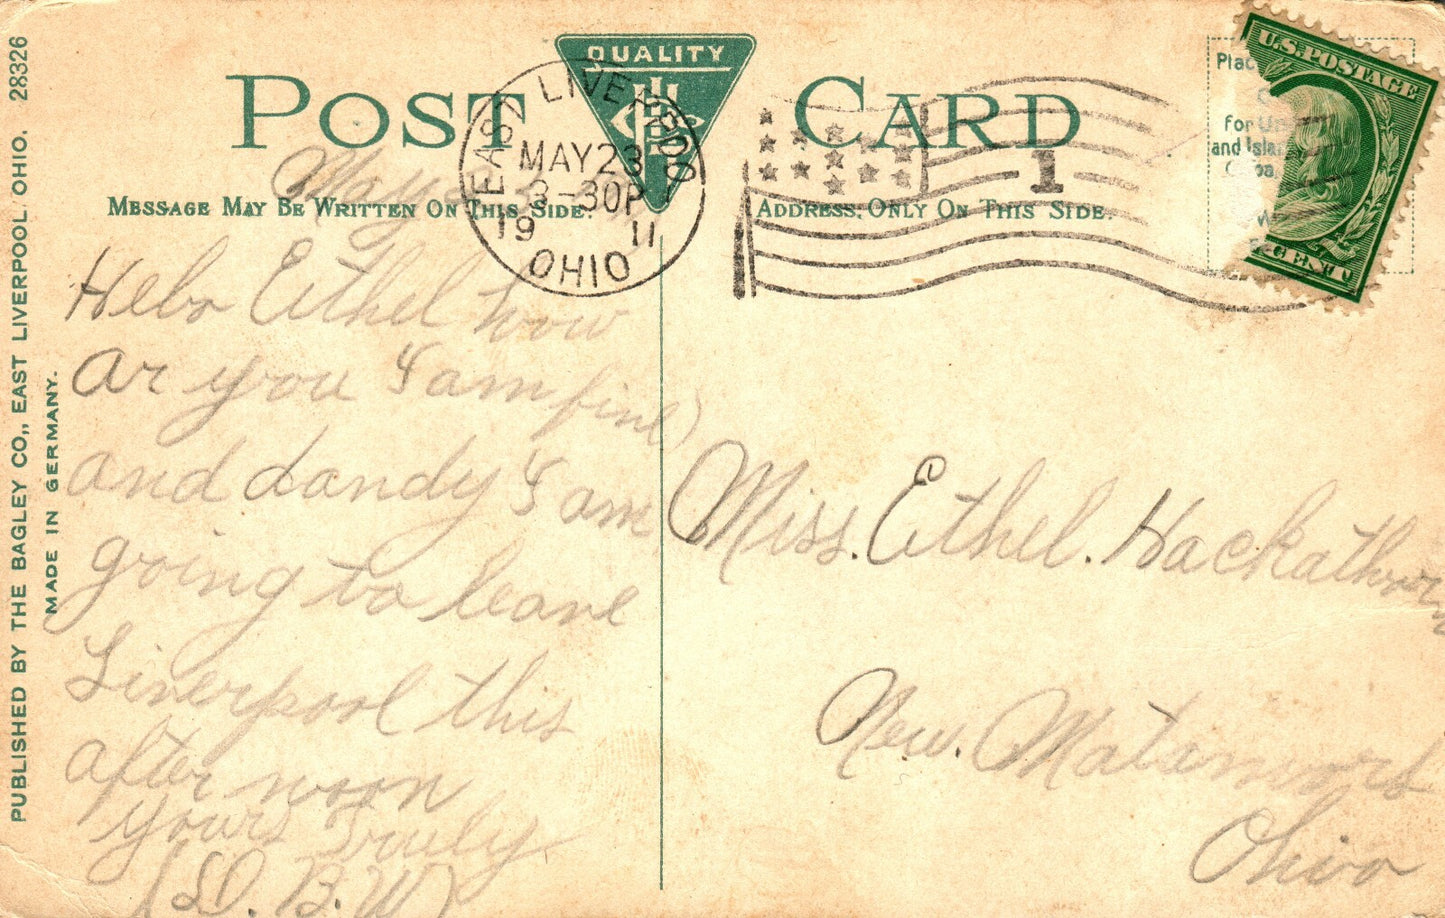 PUBLISHED BY THE BAGLEY CO., EAST LIVERPOOL, OHIO. 28326
MADE IN GERMANY.
POST CARD
QUALITY
MESSAGE MAY BE WRITTEN ON THIS SIDE.
ADDRESS ONLY ON THIS SIDE.
EAST LIVERPOOL
MAY 23
3-30P
19 11
OHIO
1
U.S. POSTAGE
CENT
Plac
For Un
and Islan
May
Hello Ethel how
ar you I am fine
and dandy I am
going to leave
Liverpool this
after noon
yours Truly
Miss. Ethel. Hackathorn
New. Matamors
Ohio